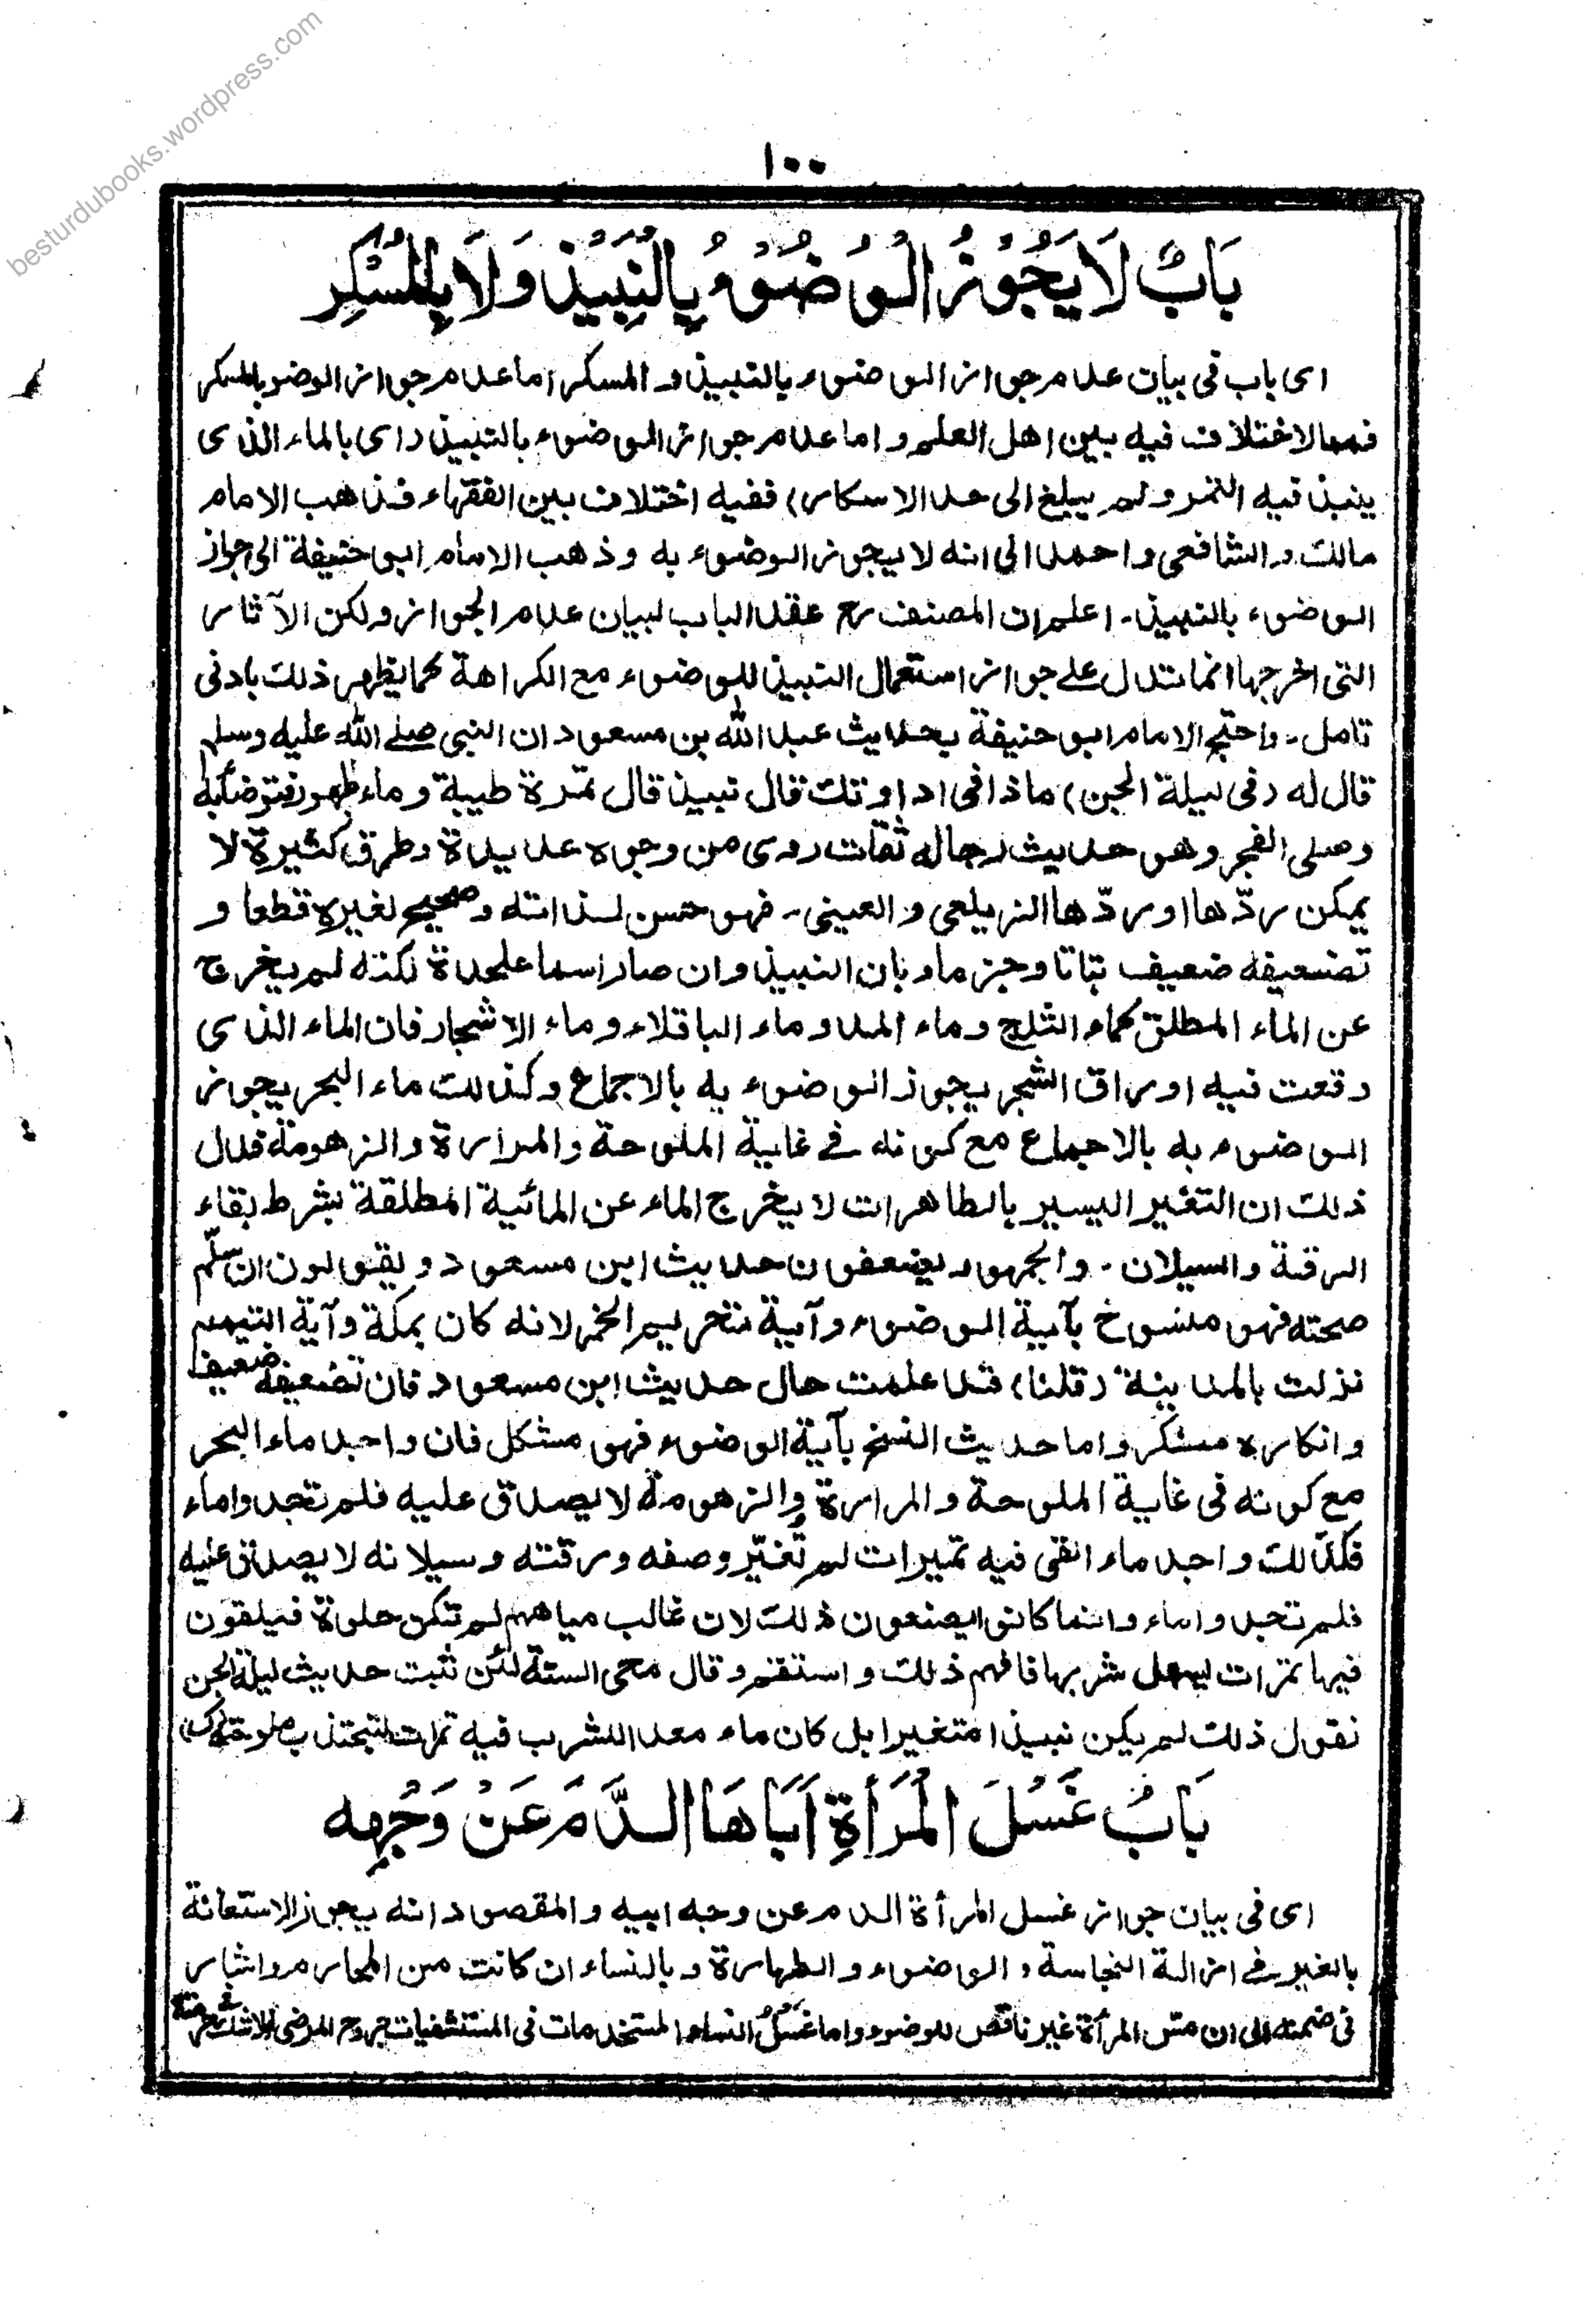 besturdubooks.wordpress.com
١٠٠
بَابٌ لَا يَجُوْزُ الْوُضُوْءُ بِالنَّبِيْذِ وَلَا بِالْمُسْكِرِ
اى باب فى بيان عدم جواز الوضوء بالنبيذ والمسكر اما عدم جواز الوضوء بالمسكر
فمما لا اختلاف فيه بين اهل العلم واما عدم جواز الوضوء بالنبيذ (اى بالماء الذى
ينبذ فيه التمر ولم يبلغ الى حد الاسكار) ففيه اختلاف بين الفقهاء فذهب الامام
مالك والشافعى واحمد الى انه لا يجوز الوضوء به وذهب الامام ابو حنيفة الى جواز
الوضوء بالنبيذ۔ اعلم ان المصنف رح عقد الباب لبيان عدم الجواز ولكن الآثار
التى اخرجها انما تدل على جواز استعمال النبيذ للوضوء مع الكراهة كما يظهر ذلك بادنى
تامل۔ واحتج الامام ابو حنيفة بحديث عبد الله بن مسعود ان النبى صلے الله عليه وسلم
قال له (فى ليلة الجن) ماذا فى اداوتك قال نبيذ قال تمرة طيبة وماء طهور فتوضأ به
وصلى الفجر وهو حديث رجاله ثقات روى من وجوه عديدة وطرق كثيرة لا
يمكن ردّها اوردّها الزيلعى والعينى۔ فهو حسن لذاته وصحيح لغيره قطعا و
تضعيفه ضعيف بتاتا وجزما وبان النبيذ وان صار اسما علحدة لكنه لم يخرج
عن الماء المطلق كماء الثلج وماء المد وماء الباقلاء وماء الاشجار فان الماء الذى
وقعت فيه اوراق الشجر يجوز الوضوء به بالاجماع وكذلك ماء البحر يجوز
الوضوء به بالاجماع مع كونه فے غاية الملوحة والمرارة والزهومة فدل
ذلك ان التغير اليسير بالطاهرات لا يخرج الماء عن المائية المطلقة بشرط بقاء
الرقة والسيلان۔ والجمهور يضعفون حديث ابن مسعود ويقولون ان سلّم
صحته فهو منسوخ بآية الوضوء وآية تحريم الخمر لانه كان بمكة وآية التيمم
نزلت بالمدينة (قلنا) قد علمت حال حديث ابن مسعود فان تضعيفه ضعيف
وانكاره منكر واما حديث النسخ بآية الوضوء فهو مشكل فان واجد ماء البحر
مع كونه فى غاية الملوحة والمرارة والزهومة لا يصدق عليه فلم تجدوا ماء
فكذلك واجد ماء القى فيه تميرات لم تغيّر وصفه ورقته وسيلانه لا يصدق عليه
فلم تجدوا ماء وانما كانوا يصنعون ذلك لان غالب مياههم لم تكن حلوة فيلقون
فيها تمرات ليسهل شربها فافهم ذلك واستقم وقال محى السنة لئن ثبت حديث ليلة الجن
نقول ذلك لم يكن نبيذا متغيرا بل كان ماء معدا للشرب فيه تمرات لتجتذب ملوحته
بَابُ غَسْلَ الْمَرْأَةِ اَبَاهَا الدَّمَ عَنْ وَجْهِه
اى فى بيان جواز غسل المرأة الدم عن وجه ابيه والمقصود انه يجوز الاستعانة
بالغير فے ازالة النجاسة والوضوء والطهارة وبالنساء ان كانت من المحارم واشار
فى ضمنه الى ان مسّ المرأة غير ناقض للوضوء واما غَسْلُ النساء المستخدمات فى المستشفيات جروح المرضى